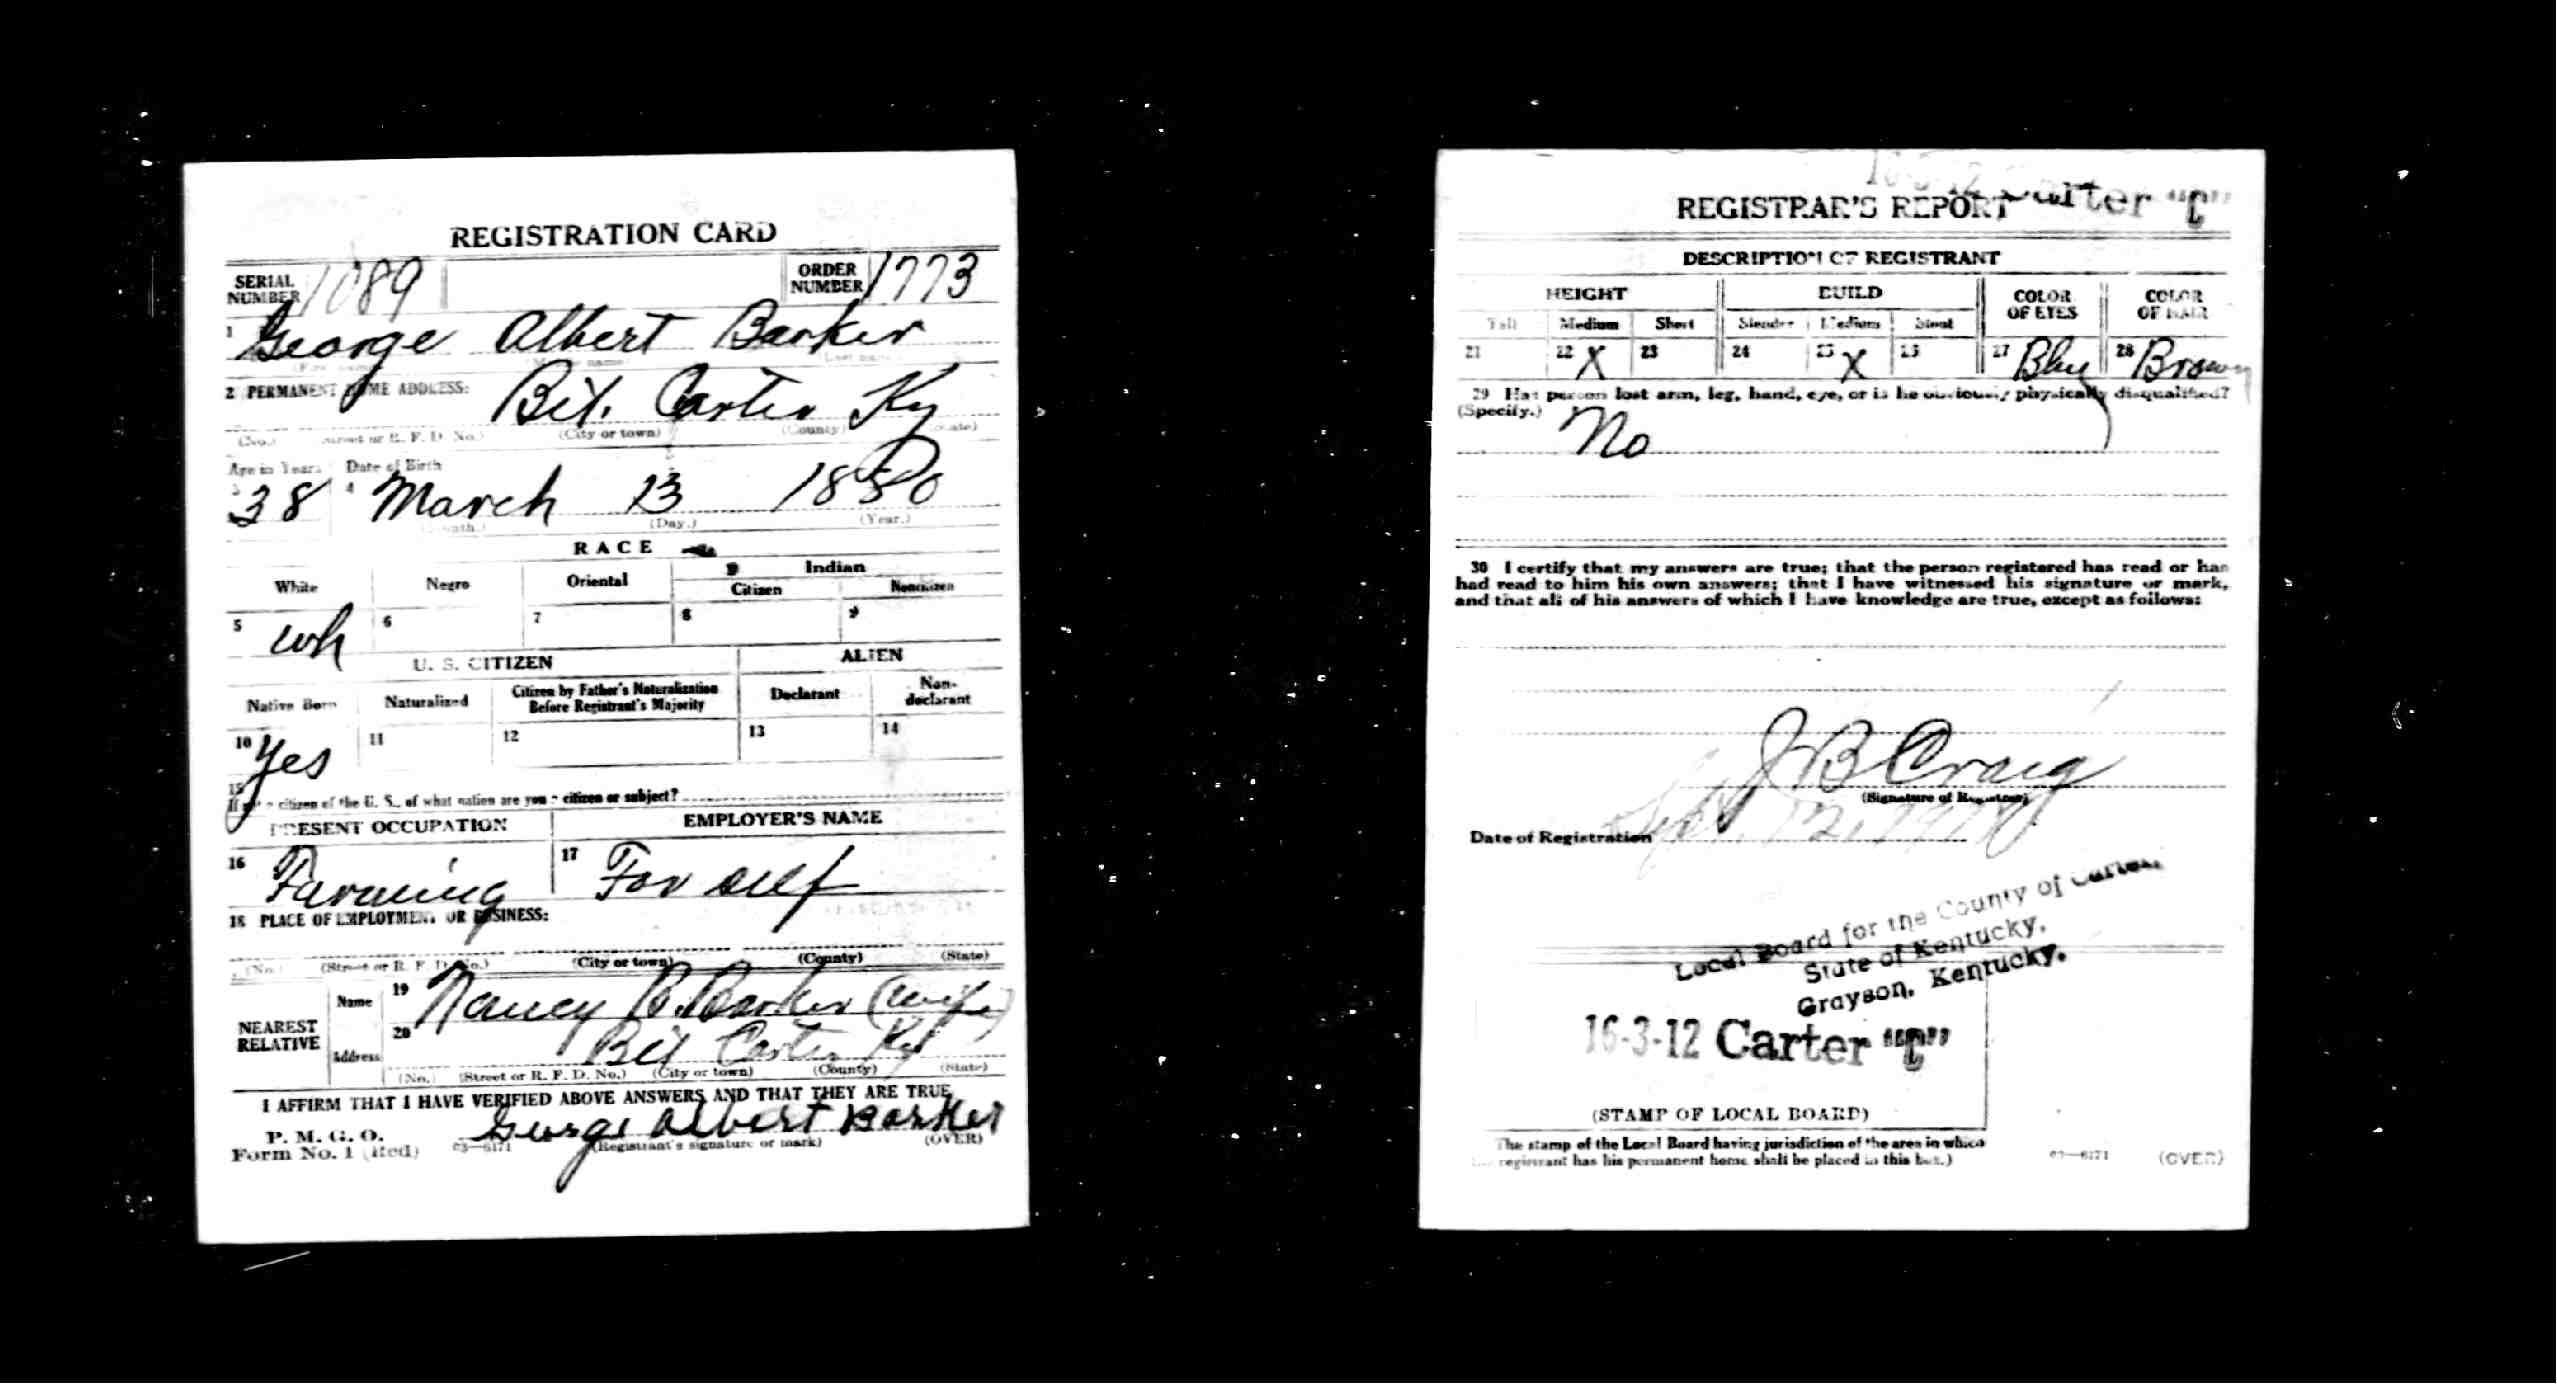 REGISTRATION CARD
SERIAL NUMBER 1089
ORDER NUMBER 1773
1 George Albert Barker
2 PERMANENT HOME ADDRESS: Bet. Carter Ky
(No.) (Street or R. F. D. No.) (City or town) (County) (State)
Age in Years Date of Birth
3 38 4 March 13 1880
(Month.) (Day.) (Year.)
RACE
White Negro Oriental Indian
Citizen Noncitizen
5 wh 6 7 8 9
U. S. CITIZEN ALIEN
Native Born Naturalized Citizen by Father's Naturalization Before Registrant's Majority Declarant Non-declarant
10 Yes 11 12 13 14
15 If not a citizen of the U. S., of what nation are you a citizen or subject?
PRESENT OCCUPATION EMPLOYER'S NAME
16 Farming 17 For self
18 PLACE OF EMPLOYMENT OR BUSINESS:
(No.) (Street or R. F. D. No.) (City or town) (County) (State)
NEAREST RELATIVE
Name 19 Nancy B. Barker (wife)
Address 20 Bet Carter Ky
(No.) (Street or R. F. D. No.) (City or town) (County) (State)
I AFFIRM THAT I HAVE VERIFIED ABOVE ANSWERS AND THAT THEY ARE TRUE
P. M. G. O.
Form No. 1 (Red) 03—6171 George Albert Barker
(Registrant's signature or mark) (OVER)
16-3-12 Carter "C"
REGISTRAR'S REPORT
DESCRIPTION OF REGISTRANT
HEIGHT BUILD COLOR OF EYES COLOR OF HAIR
Tall Medium Short Slender Medium Stout
21 22 X 23 24 25 X 26 27 Blue 28 Brown
29 Has person lost arm, leg, hand, eye, or is he obviously physically disqualified?
(Specify.) No
30 I certify that my answers are true; that the person registered has read or has
had read to him his own answers; that I have witnessed his signature or mark,
and that all of his answers of which I have knowledge are true, except as follows:
J B Craig
(Signature of Registrar)
Date of Registration Sept. 12, 1918
Local Board for the County of Carter,
State of Kentucky,
Grayson, Kentucky.
16-3-12 Carter "C"
(STAMP OF LOCAL BOARD)
The stamp of the Local Board having jurisdiction of the area in which
the registrant has his permanent home shall be placed in this box.)
03—6171 (OVER)